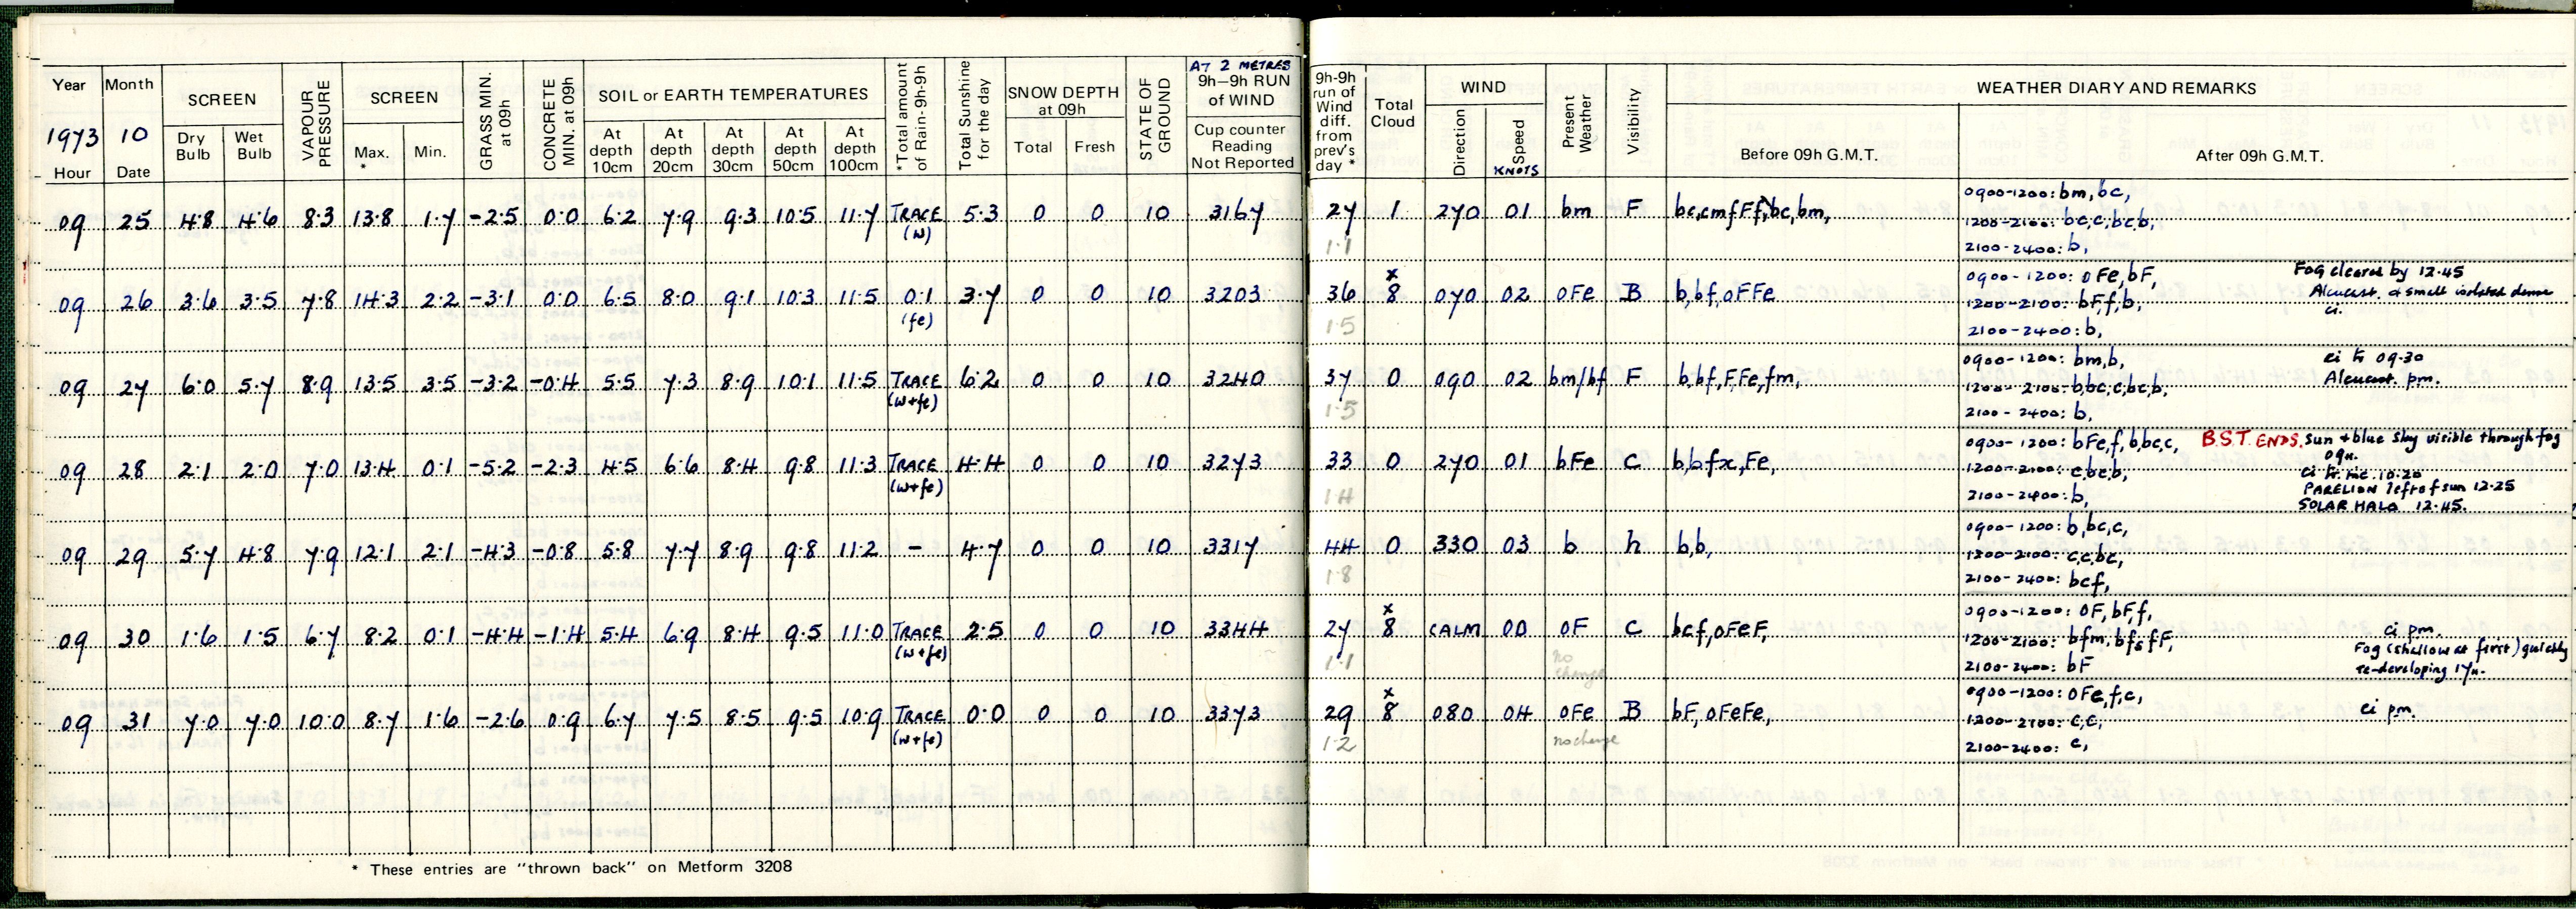 Year Month SCREEN VAPOUR PRESSURE SCREEN GRASS MIN. at 09h CONCRETE MIN. at 09h SOIL or EARTH TEMPERATURES *Total amount of Rain-9h-9h Total Sunshine for the day SNOW DEPTH at 09h STATE OF GROUND AT 2 METRES 9h—9h RUN of WIND
1973 10 Dry Bulb Wet Bulb Max. * Min. At depth 10cm At depth 20cm At depth 30cm At depth 50cm At depth 100cm Total Fresh Cup counter Reading Not Reported
Hour Date
09 25 4.8 4.6 8.3 13.8 1.7 -2.5 0.0 6.2 7.9 9.3 10.5 11.7 TRACE (w) 5.3 0 0 10 3167
09 26 3.6 3.5 7.8 14.3 2.2 -3.1 0.0 6.5 8.0 9.1 10.3 11.5 0.1 (fe) 3.7 0 0 10 3203
09 27 6.0 5.7 8.9 13.5 3.5 -3.2 -0.4 5.5 7.3 8.9 10.1 11.5 TRACE (w+fe) 6.2 0 0 10 3240
09 28 2.1 2.0 7.0 13.4 0.1 -5.2 -2.3 4.5 6.6 8.4 9.8 11.3 TRACE (w+fe) 4.4 0 0 10 3273
09 29 5.7 4.8 7.9 12.1 2.1 -4.3 -0.8 5.8 7.7 8.9 9.8 11.2 - 4.7 0 0 10 3317
09 30 1.6 1.5 6.7 8.2 0.1 -4.4 -1.4 5.4 6.9 8.4 9.5 11.0 TRACE (w+fe) 2.5 0 0 10 3344
09 31 7.0 7.0 10.0 8.7 1.6 -2.6 0.9 6.7 7.5 8.5 9.5 10.9 TRACE (w+fe) 0.0 0 0 10 3373
* These entries are "thrown back" on Metform 3208
9h-9h run of Wind diff. from prev's day * Total Cloud WIND Present Weather Visibility WEATHER DIARY AND REMARKS
Direction Speed KNOTS Before 09h G.M.T. After 09h G.M.T.
27 1 270 01 bm F bc,cmfFf,bc,bm,
1.1
0900-1200: bm, bc,
1200-2100: bc,c,bcb,
2100-2400: b,
36 x 8 070 02 oFe B b,bf,oFFe
1.5
0900-1200: oFe,bF, Fog cleared by 12.45
1200-2100: bFf,b, Alcucast. & small isolated dense
ci.
2100-2400: b,
37 0 090 02 bm/bf F b,bf,F,Fe,fm,
1.5
0900-1200: bm,b, ci to 09.30
1200-2100: b,bc,c,bcb, Alcucast. pm.
2100-2400: b,
33 0 270 01 bFe C b,bfx,Fe,
1.4
0900-1200: bFe,f,b,bc,c, B.S.T. ENDS. Sun + blue sky visible through fog
09h.
1200-2100: c,bcb, 10.20
2100-2400: b, PARELION left of sun 12.25
SOLAR HALO 12.45.
44 0 330 03 b h b,b,
1.8
0900-1200: b,bc,c,
1200-2100: c,c,bc,
2100-2400: bcf,
27 x 8 CALM 00 oF C bcf,oFeF,
1.1 no change
0900-1200: OF, bFf,
1200-2100: bfm, bfsfF, ci pm.
Fog (shallow at first) quickly
2100-2400: bF re-developing 17h.
29 x 8 080 04 oFe B bF, oFeFe,
1.2 no change
0900-1200: OFe,f,c,
1200-2100: c,c, ci pm.
2100-2400: c,